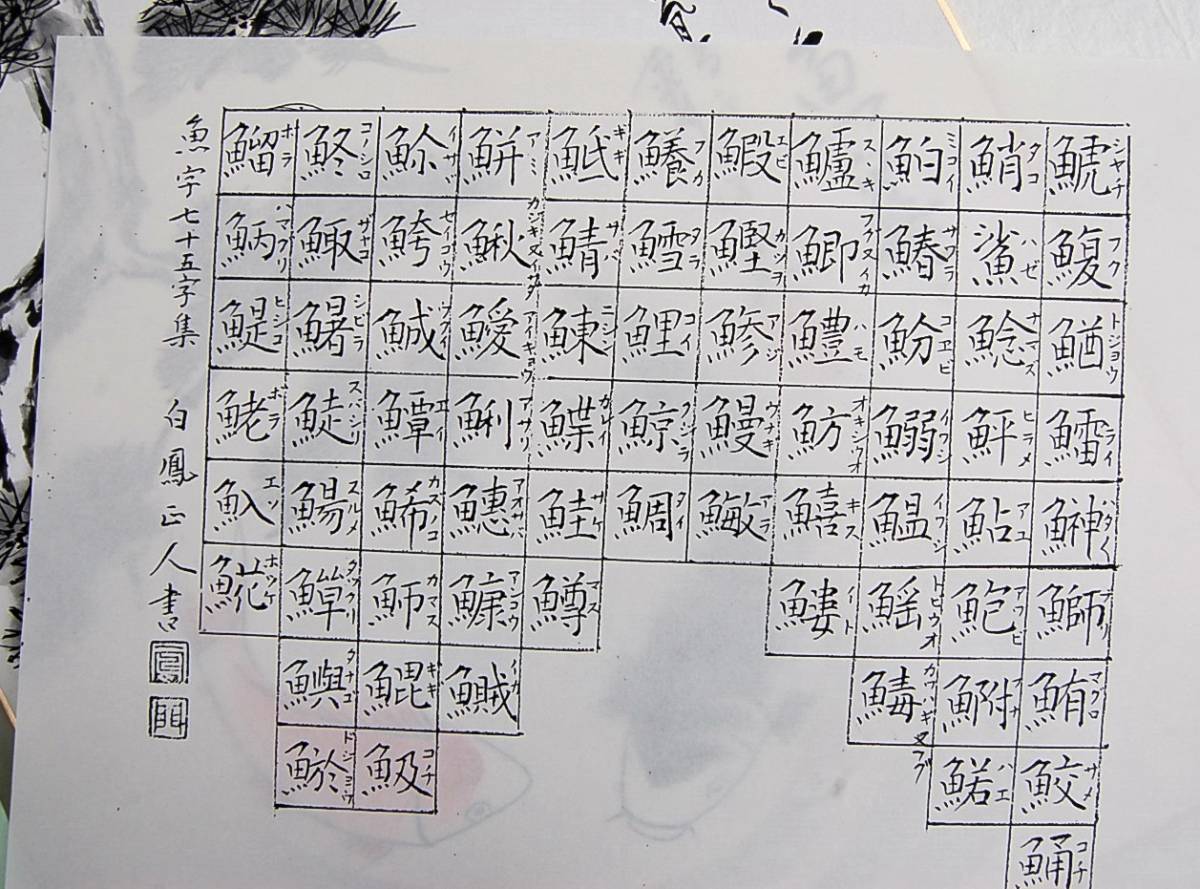 鯱 シャチ
鰒 フク
鰌 トジョウ
鱩 ライ
鰰 ハタ〱
鰤 ブリ
鮪 マグロ
鮫 サメ
鯒 コチ
鮹 タコ
鯊 ハゼ
鯰 ナマズ
鮃 ヒラメ
鮎 アユ
鮑 アワビ
鮒 フナ
鰙 ハエ
鮊 ミコイ
鰆 サワラ
魵 コエビ
鰯 イワシ
鰮 イワシ
鰩 トビウオ
カワハギ又フグ
鱸 スヽキ
鯽 フナ又イカ
鱧 ハモ
魴 オキシウオ
鱚 キス
イト
鰕 エビ
鰹 カツヲ
鰺 アジ
鰻 ウナキ
鰵 アラ
鱶 フカ
鱈 タラ
鯉 コイ
鯨 クジラ
鯛 タイ
ギギ
鯖 サバ
鰊 ニシン
鰈 カレイ
鮭 サケ
鱒 マス
鮩 アミ
鰍 カジキ又イナダ
アイキョウ
鯏 アサリ
アオサバ
鱇 アンコウ
鱡 イカ
鮽 イサザ
鮬 セイゴウ
鯎 ウグイ
鱏 エイ
鯑 カズノコ
魳 カマス
ギギ
コチ
鮗 コノシロ
鯫 ザコ
シビラ
鯐 スバシリ
鰑 スルメ
タツクリ
鱮 タナゴ
ドジョウ
鰡 ボラ
ハマグリ
鯷 ヒシコ
鮱 ボラ
魞 エツ
𩸽 ホッケ
魚字七十五字集 白鳳正人書